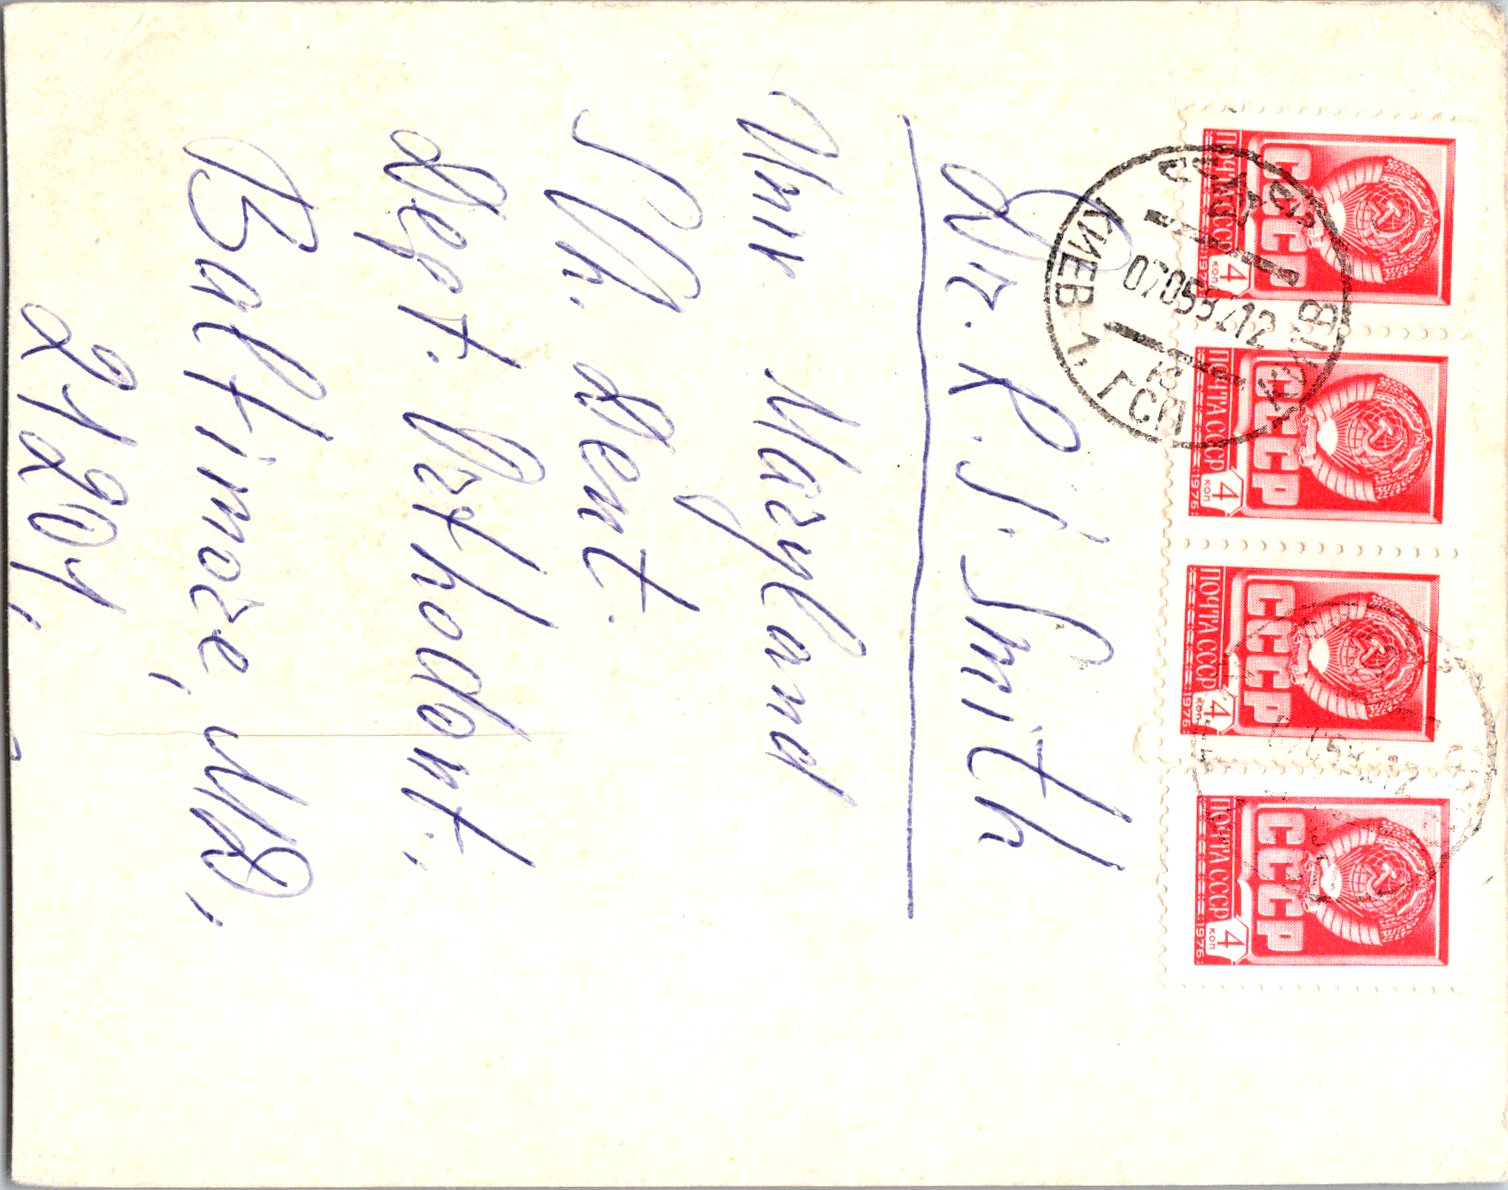 ПОЧТА СССР
СССР
4
КОП
1976
ПОЧТА СССР
СССР
4
КОП
1976
ПОЧТА СССР
СССР
4
КОП
1976
ПОЧТА СССР
СССР
4
КОП
1976
КИЕВ 1, ГСП
Dr. R. J. Smith
Univ. Maryland
Sch. Dent.
Dept. Orthodont.,
Baltimore, MD,
21201,